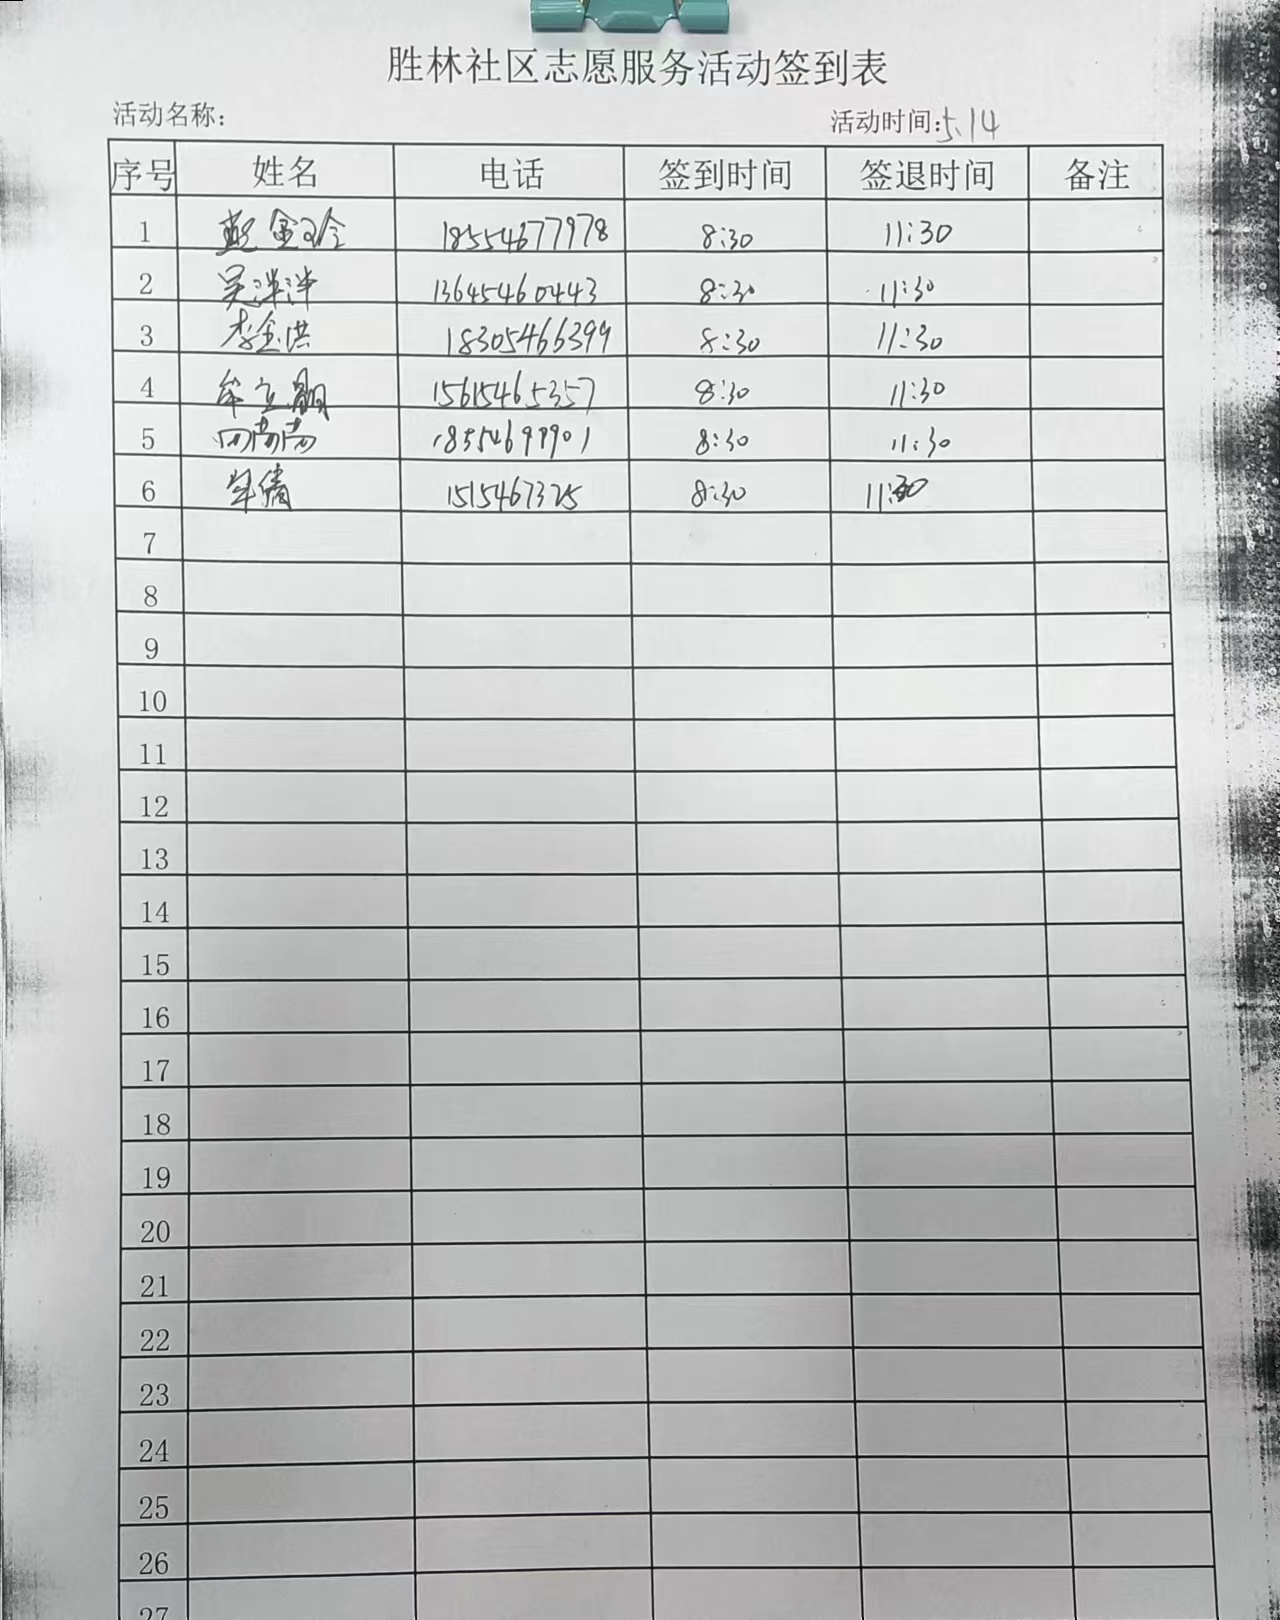 胜林社区志愿服务活动签到表
活动名称： 活动时间：5.14
序号 姓名 电话 签到时间 签退时间 备注
1 金玲 18554677978 8:30 11:30
2 吴洋洋 13645460443 8:30 11:30
3 李金洪 18305466399 8:30 11:30
4 牟立 15615465357 8:30 11:30
5 田南南 18554699901 8:30 11:30
6 牟倩 1515467325 8:30 11:30
7
8
9
10
11
12
13
14
15
16
17
18
19
20
21
22
23
24
25
26
27